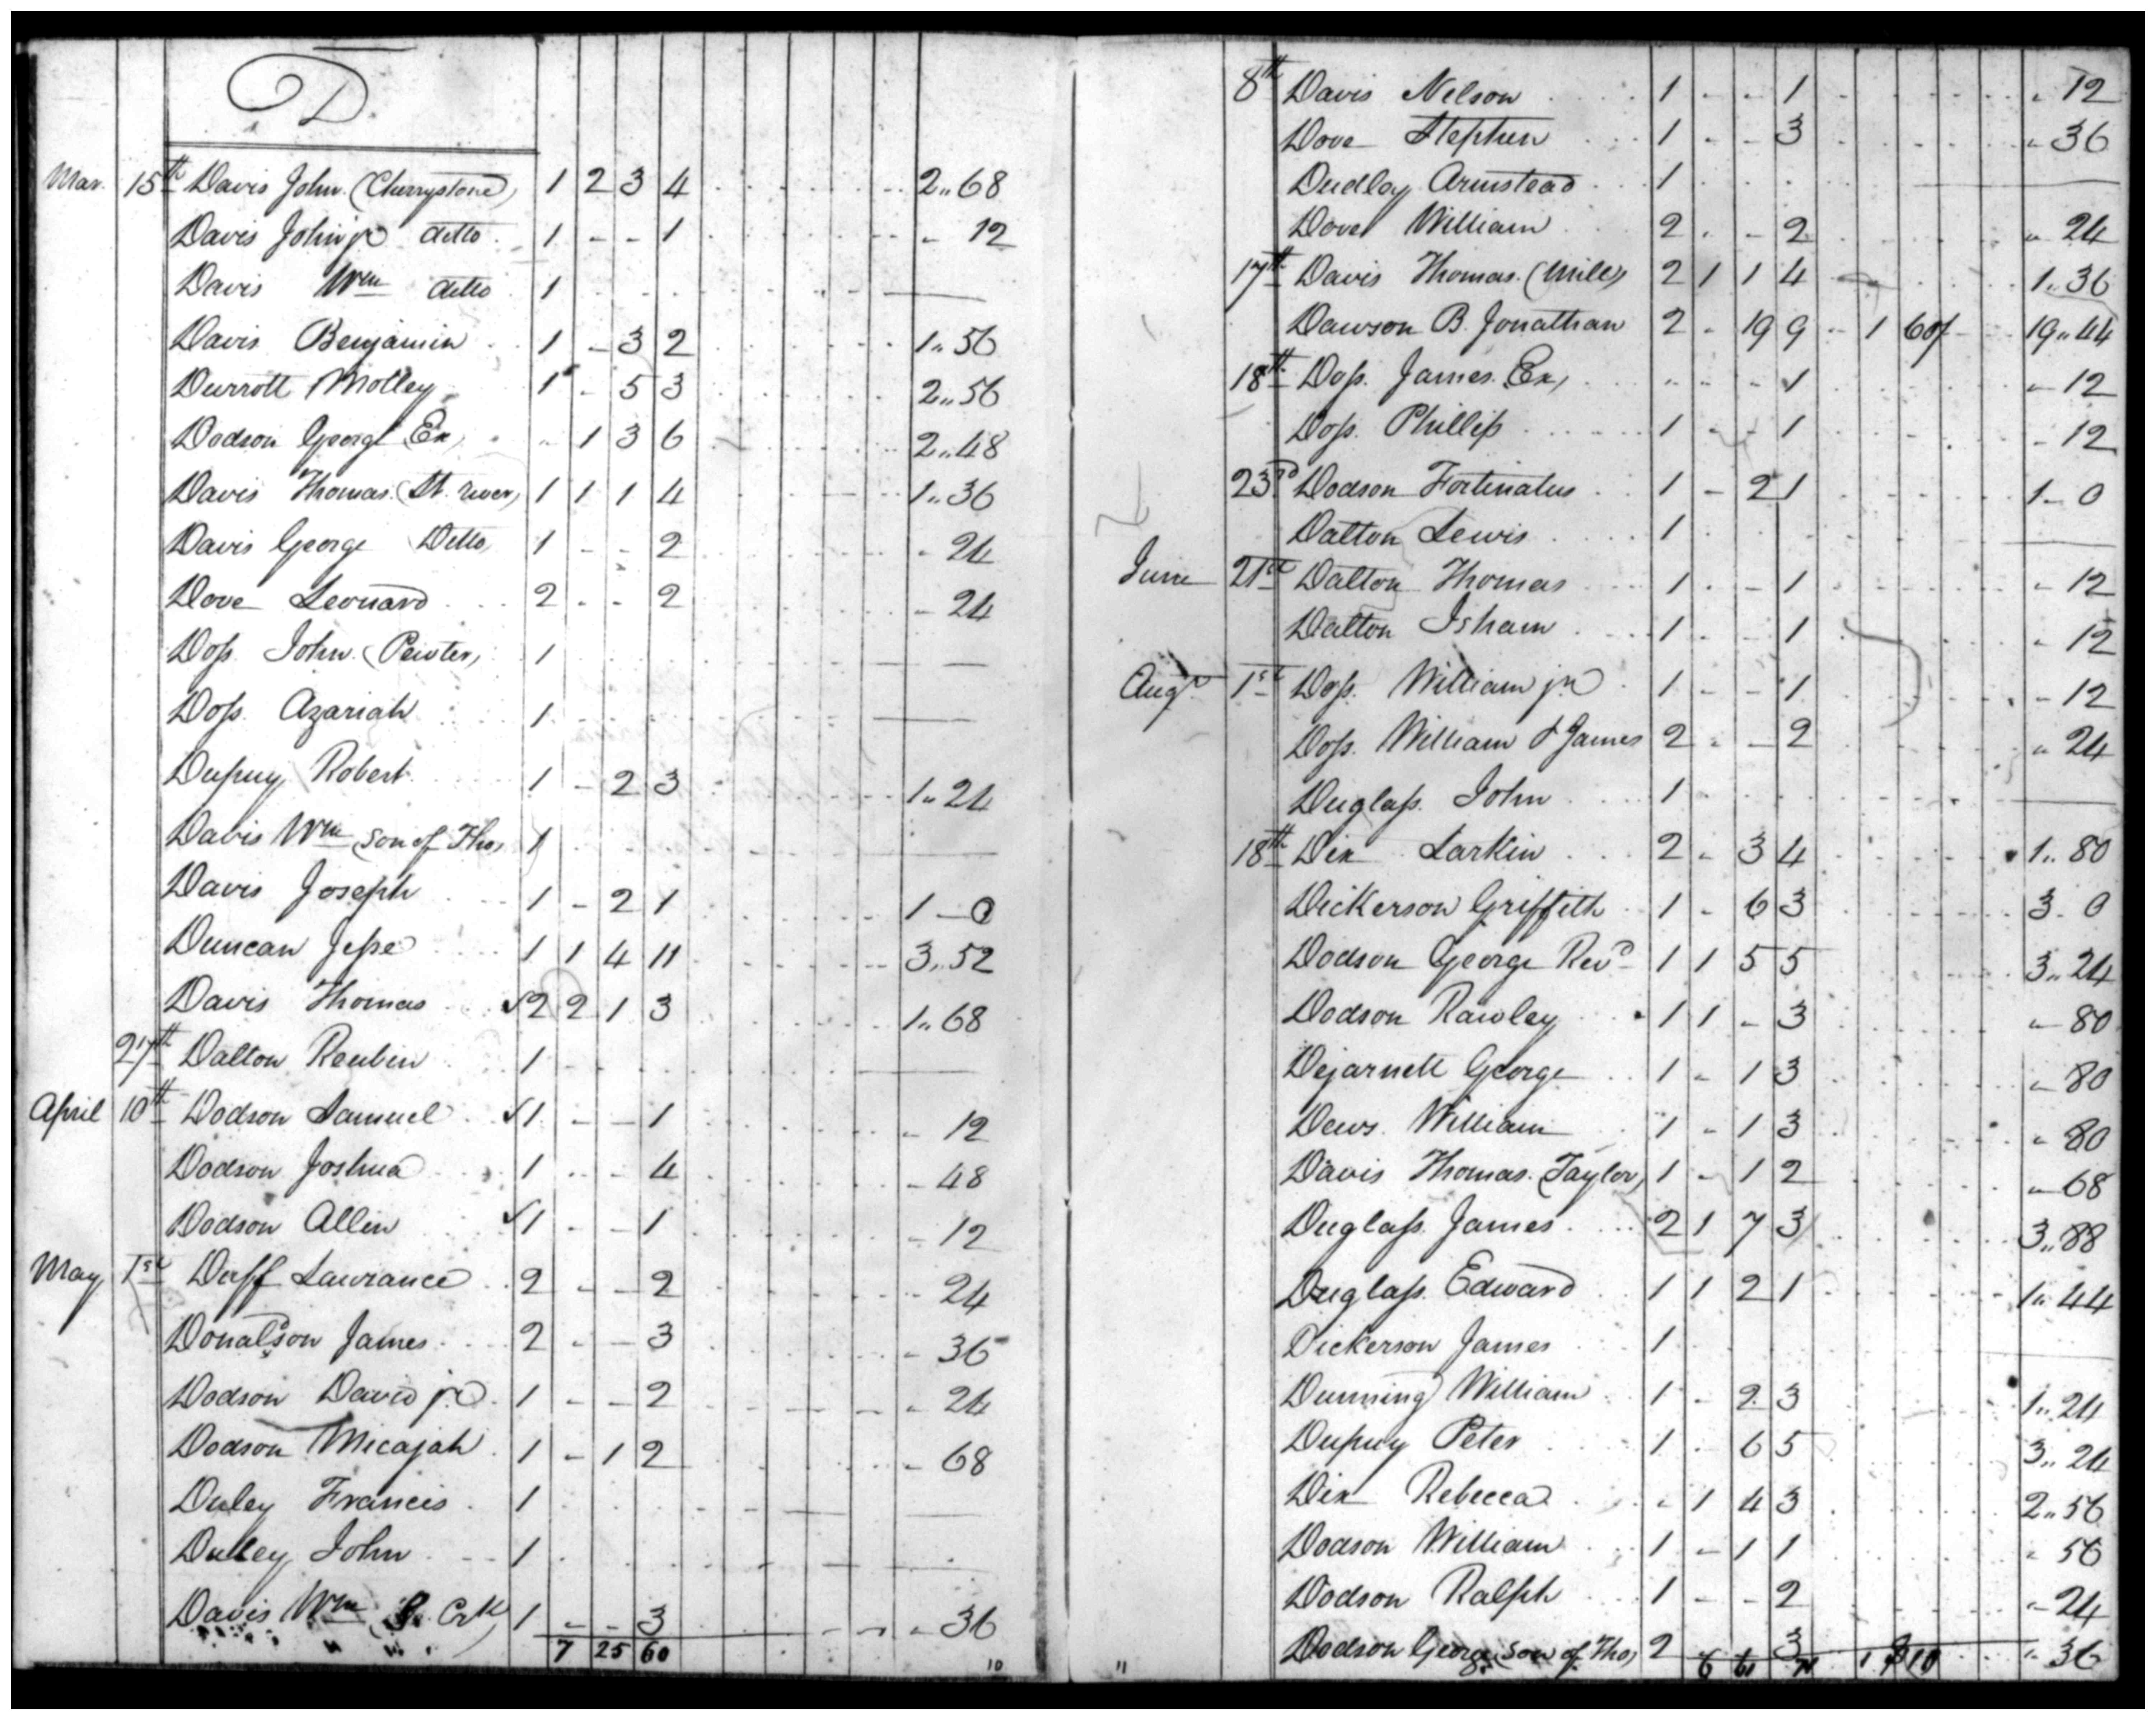 D.
Mar. 15th Davis John (Cherrystone) 1 2 3 4 2..68
Davis John jr ditto 1 - - 1 - 12
Davis Wm ditto 1
Davis Benjamin 1 - 3 2 1..56
Durrott Molley 1 - 5 3 2..56
Dodson George Ex, .. 1 3 6 2..48
Davis Thomas (St. river) 1 1 1 4 1..36
Davis George Ditto 1 - - 2 - 24
Dove Leonard 2 - - 2 - 24
Doss John (Pewter) 1
Doss Azariah 1
Dupuy Robert 1 - 2 3 1..24
Davis Wm son of Thos 1
Davis Joseph 1 - 2 1 1 - 0
Duncan Jesse 1 1 4 11 3..52
Davis Thomas ✓2 2 1 3 1..68
27th Dalton Reubin 1
April 10th Dodson Samuel ✓1 - - 1 - 12
Dodson Joshua 1 - - 4 - 48
Dodson Allen ✓1 - - 1 - 12
May 1st Duff Lawrance 2 - - 2 - 24
Donalson James 2 - - 3 - 36
Dodson David jr 1 - - 2 - 24
Dodson Micajah 1 - 1 2 - 68
Duley Francis 1
Dulley John 1
Davis Wm Crk) 1 - - 3 - 36
7 25 60
10
8th Davis Nelson 1 - - 1 - 12
Dove Stephen 1 - - 3 - 36
Dudley Armstead 1
Dove William 2 - - 2 - 24
17th Davis Thomas (Mill) 2 1 1 4 1..36
Dawson B. Jonathan 2 - 19 9 - 1 60/ 19..44
18th Doss James Ex, .. - - 1 - 12
Doss Phillip 1 - - 1 - 12
23rd Dodson Fortinatus 1 - 2 1 1 - 0
Dalton Lewis 1
June 21st Dalton Thomas 1 - - 1 - 12
Dalton Isham 1 - - 1 - 12
Augt 1st Doss William jr 1 - - 1 - 12
Doss William & James 2 - - 2 - 24
Duglass John 1
18th Dix Larkin 2 - 3 4 1..80
Dickerson Griffith 1 - 6 3 3 - 0
Dodson George Revd 1 1 5 5 3..24
Dodson Rawley 1 1 - 3 - 80
Dejarnett George 1 - 1 3 - 80
Dews William 1 - 1 3 - 80
Davis Thomas (Taylor) 1 - 1 2 - 68
Duglass James 2 1 7 3 3..88
Duglass Edward 1 1 2 1 1..44
Dickerson James 1
Dunning William 1 - 2 3 1..24
Dupuy Peter 1 - 6 5 3..24
Dix Rebecca .. 1 4 3 2..56
Dodson William 1 - 1 1 - 56
Dodson Ralph 1 - - 2 - 24
Dodson George son of Thos 2 3 - 36
6 61 71 1 $10
11